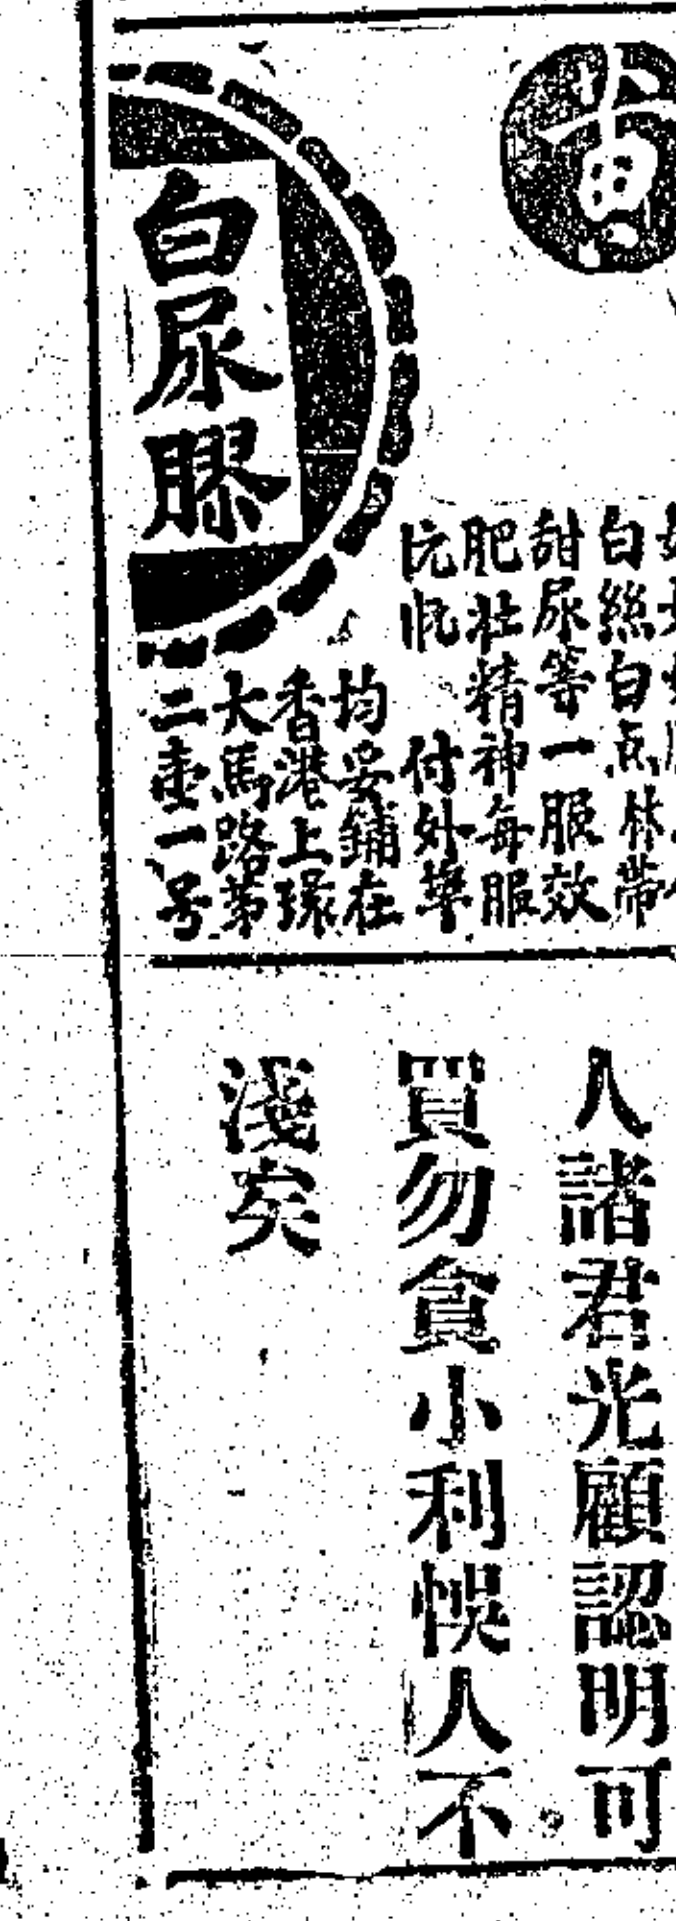 黄
白絲白点林帶
甜尿等一服效
肥壯精神每服
付外埠
均妥鋪在
香港上环
大馬路第
二壹一号
白尿膠
人諸君光顧認明可
買勿貪小利悞人不
淺矣